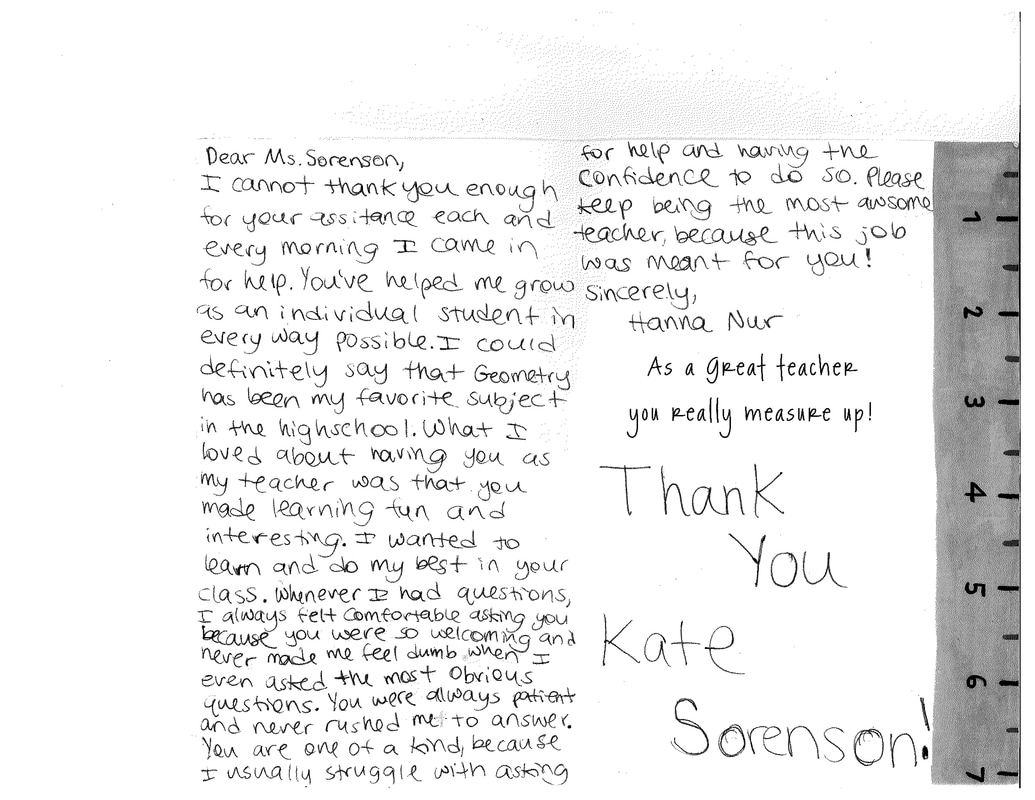 Dear Ms. Sorenson,
I cannot thank you enough
for your assitance each and
every morning I came in
for help. You've helped me grow
as an individual student in
every way possible. I could
definitely say that Geometry
has been my favorite subject
in the highschool. What I
loved about having you as
my teacher was that you
made learning fun and
interesting. I wanted to
learn and do my best in your
class. Whenever I had questions,
I always felt comfortable asking you
because you were so welcoming and
never made me feel dumb when I
even asked the most obvious
questions. You were always patient
and never rushed me to answer.
You are one of a kind, because
I usually struggle with asking
for help and having the
confidence to do so. Please
keep being the most awsome
teacher, because this job
was meant for you!
Sincerely,
Hanna Nur
As a great teacher
you really measure up!
Thank
You
Kate
Sorenson!
1
2
3
4
5
6
7